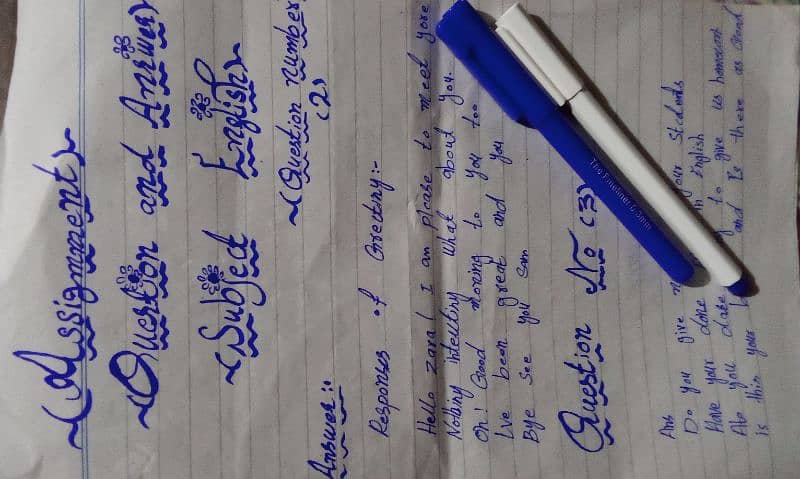 (Assignment)
(Question and Answer)
(Subject English)
(Question number
(2)
Answer:-
Responses of Greeting:-
Hello Zara! I am please to meet yore
Nothing intersting what about you.
Oh! Good moring to you too
Ive been great and you
Bye see you sam
Question No (3)
Ans
Do you give your students
Have your done in English
Ale you to give us homework
is this your and Is there as
The Fineliner 0.5mm